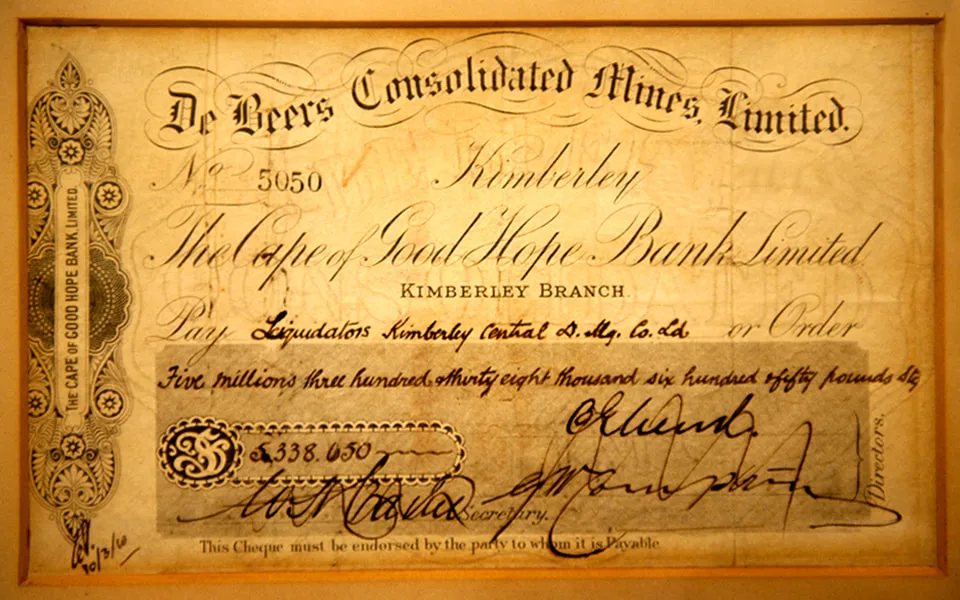 De Beers Consolidated Mines, Limited.
No 5050 Kimberley
The Cape of Good Hope Bank Limited
KIMBERLEY BRANCH
Pay Liquidators Kimberley Central D. Mg. Co. Ld or Order
Five millions three hundred & thirty eight thousand six hundred & fifty pounds Stg
5,338,650
Secretary.
Directors.
This Cheque must be endorsed by the party to whom it is Payable
THE CAPE OF GOOD HOPE BANK LIMITED.